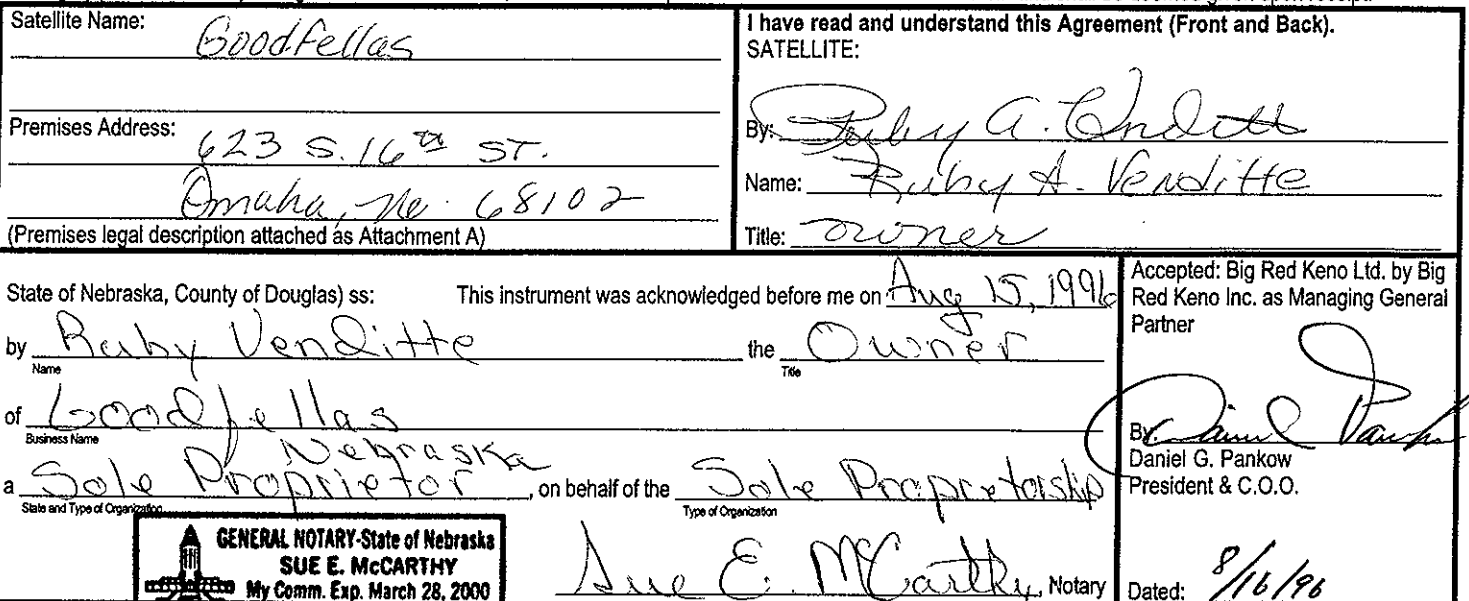 Satellite Name:
Goodfellas
Premises Address:
623 S. 16th ST.
Omaha, Ne. 68102
(Premises legal description attached as Attachment A)
I have read and understand this Agreement (Front and Back).
SATELLITE:
By: Ruby A. Venditte
Name: Ruby A. Venditte
Title: owner
State of Nebraska, County of Douglas) ss: This instrument was acknowledged before me on Aug 15, 1996
by Ruby Venditte the Owner
Name Title
of Goodfellas
Business Name
Nebraska
a Sole Proprietor, on behalf of the Sole Proprietorship
State and Type of Organization Type of Organization
GENERAL NOTARY-State of Nebraska
SUE E. McCARTHY
My Comm. Exp. March 28, 2000
Sue E. McCarthy, Notary
Accepted: Big Red Keno Ltd. by Big
Red Keno Inc. as Managing General
Partner
By: Daniel Pankow
Daniel G. Pankow
President & C.O.O.
Dated: 8/16/96